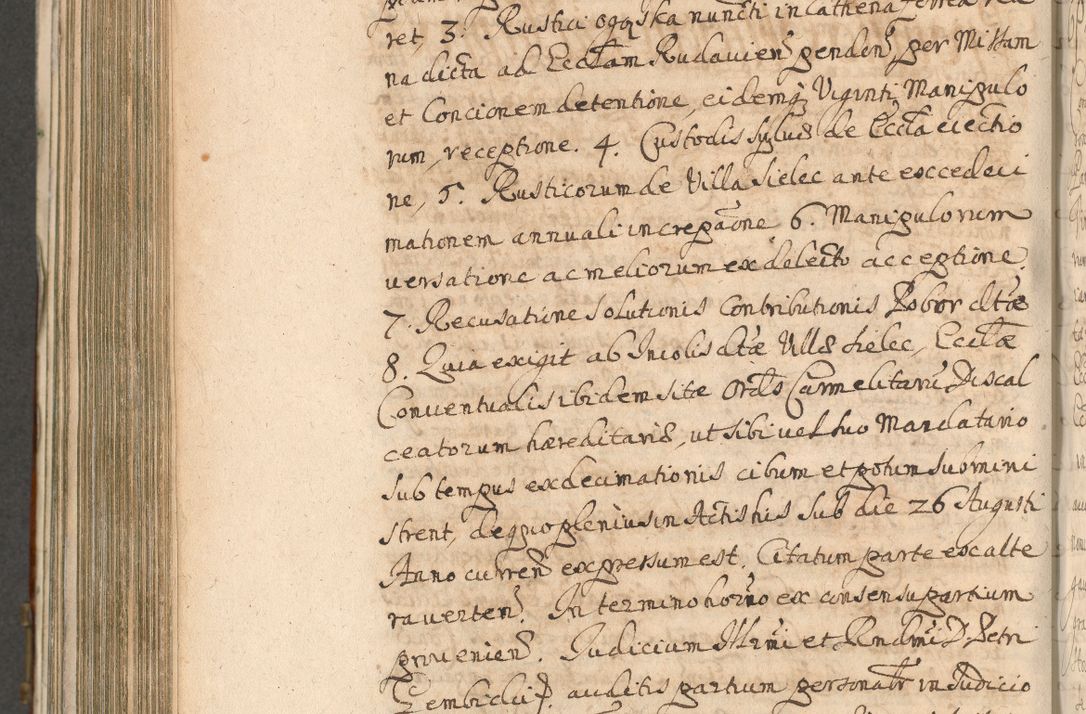 ret, 3. Rustici Ogoska nuncti in Cathena ferrea
na dicta ad Ecclam Rudavien̄ penden̄ per Missam
et Concionem detentione, eidemq; Viginti Manipulo
rum, receptione. 4. Custodis sylvæ de Eccla eiectio
ne, 5. Rusticorum de Villa Sielec ante exdeci
mationem annuali increpãone 6. Manipulorum
versatione ac meliorum ex delecto acceptione.
7. Recusatione solutionis Contributionis Pobor dtæ
8. Quia exigit ab Incolis dtæ Villæ Sielec, Ecclæ
Conventualis ibidem sitæ Ordis Carmelitarũ Discal
ceatorum hæreditariæ, ut sibi vel suo Mandatario
sub tempus exdecimationis cibum et potum submini
strent, de quo plenius in Actis his sub die 26 Augusti
Anno curren̄ expressum est. Citatum parte ex alte
ra verten̄. In termino horno ex consensu partium
provenien̄. Judicium Illrmi et Rndmi D. Petri
Gembicki P. auditis partium personalr in Judicio